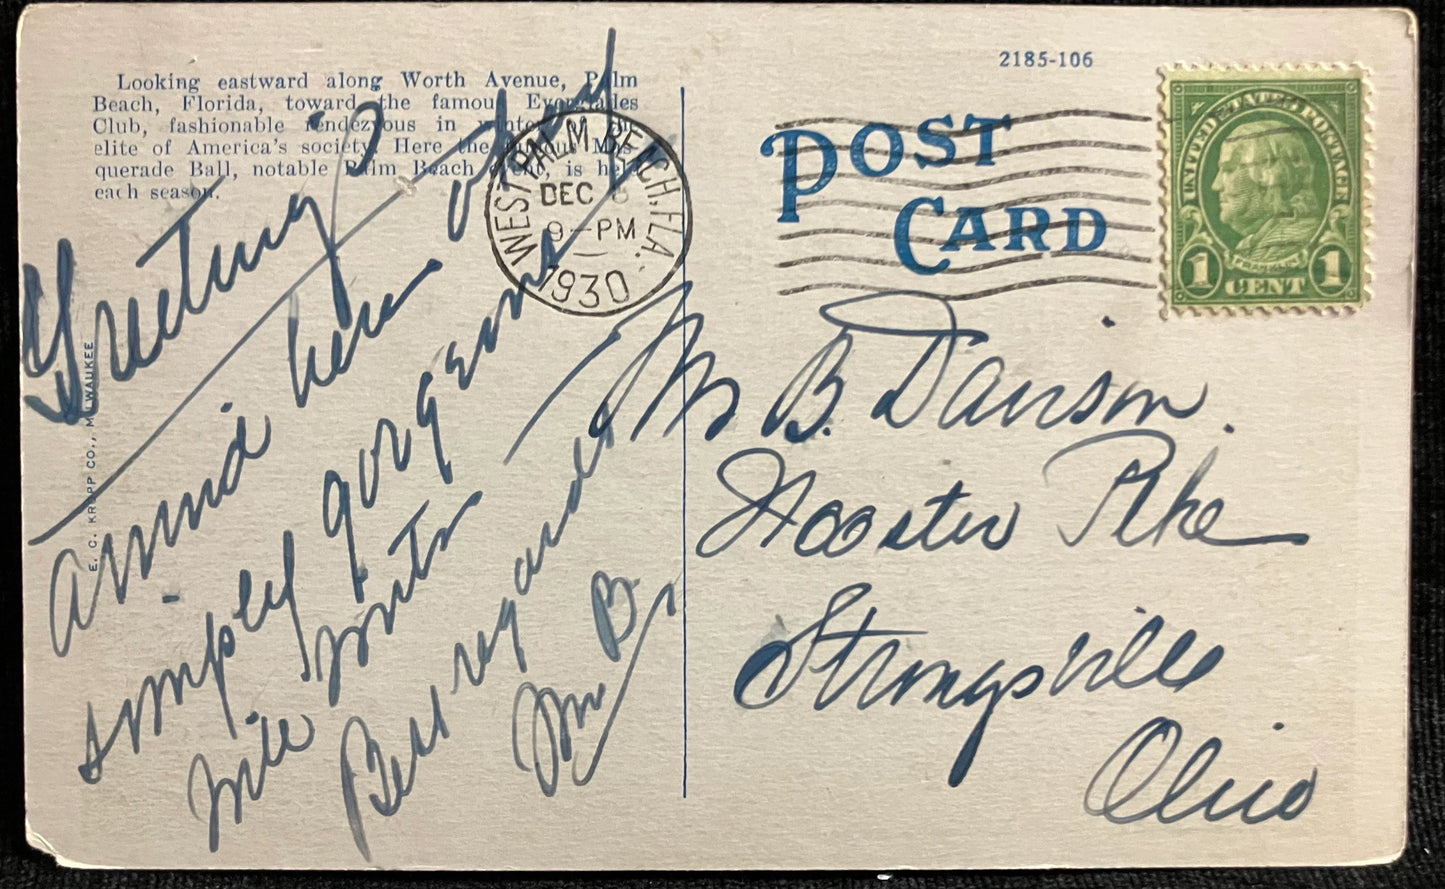 Looking eastward along Worth Avenue, Palm
Beach, Florida, toward the famous Everglades
Club, fashionable rendezvous in winter of the
elite of America's society. Here the famous Mas-
querade Ball, notable Palm Beach event, is held
each season.
E. C. KROPP CO., MILWAUKEE
Greetings
Arrived here and
simply gorgeous
Will write
Best regards
Wm B.
WEST PALM BEACH, FLA.
DEC 8
9-PM
1930
2185-106
POST
CARD
UNITED STATES POSTAGE
FRANKLIN
1 CENT 1
Mr B. Davison.
Wooster Pike
Strongsville
Ohio